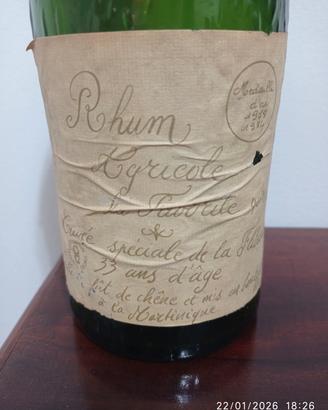 Médaille
d'or
Rhum
Agricole
La Favorite
Cuvée spéciale de la
33 ans d'âge
fût de chêne et mis en
à la Martinique
22/01/2026 18:26